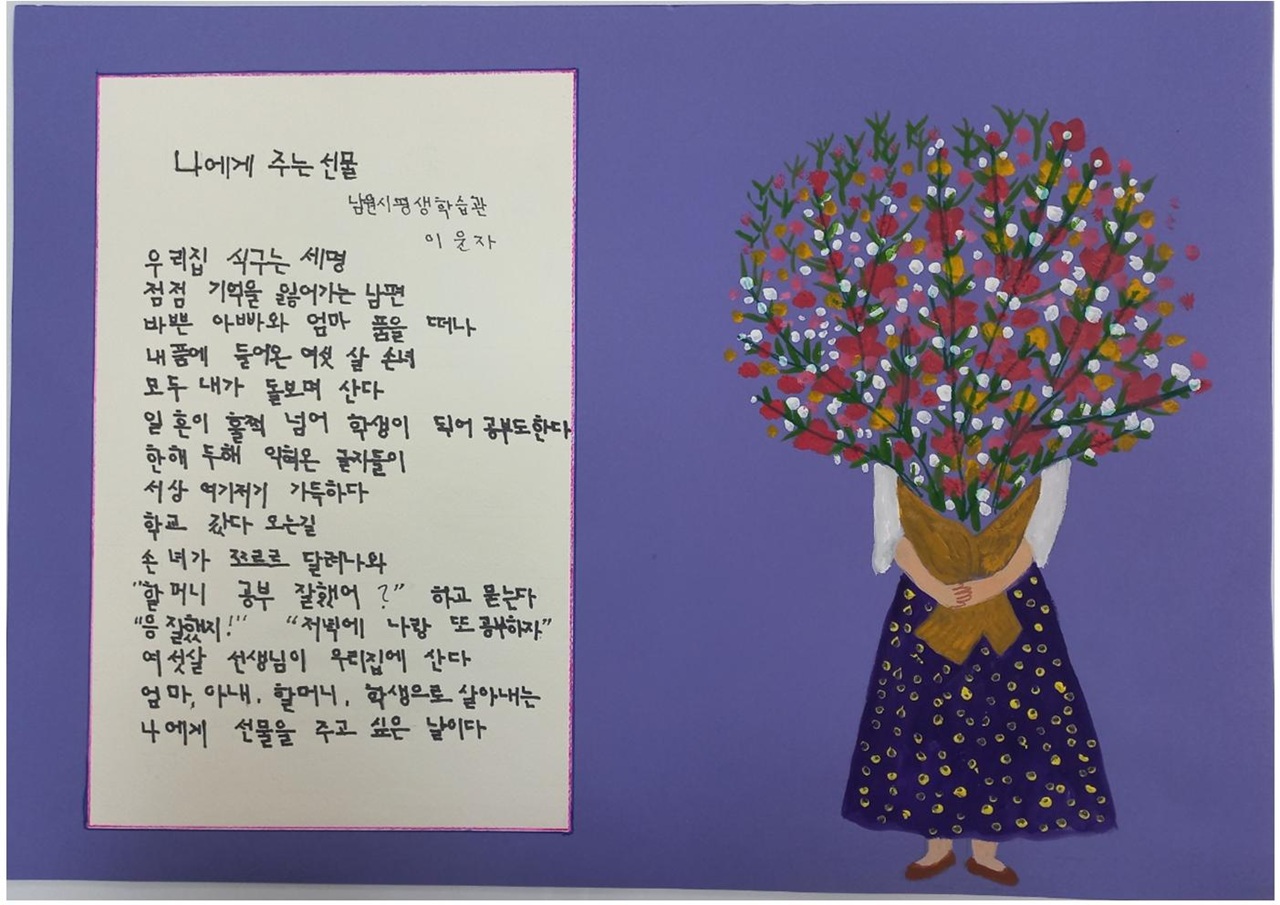 나에게 주는 선물
남원시평생학습관
이 윤자
우리집 식구는 세명
점점 기억을 잃어가는 남편
바쁜 아빠와 엄마 품을 떠나
내품에 들어온 여섯 살 손녀
모두 내가 돌보며 산다
일흔이 훌쩍 넘어 학생이 되어 공부도한다
한해 두해 익혀온 글자들이
서상 여기저기 가득하다
학교 갔다 오는길
손녀가 쪼르르 달려나와
"할머니 공부 잘했어?" 하고 묻는다
"응 잘했지!" "저녁에 나랑 또 공부하자"
여섯살 선생님이 우리집에 산다
엄마, 아내, 할머니, 학생으로 살아내는
나에게 선물을 주고 싶은 날이다